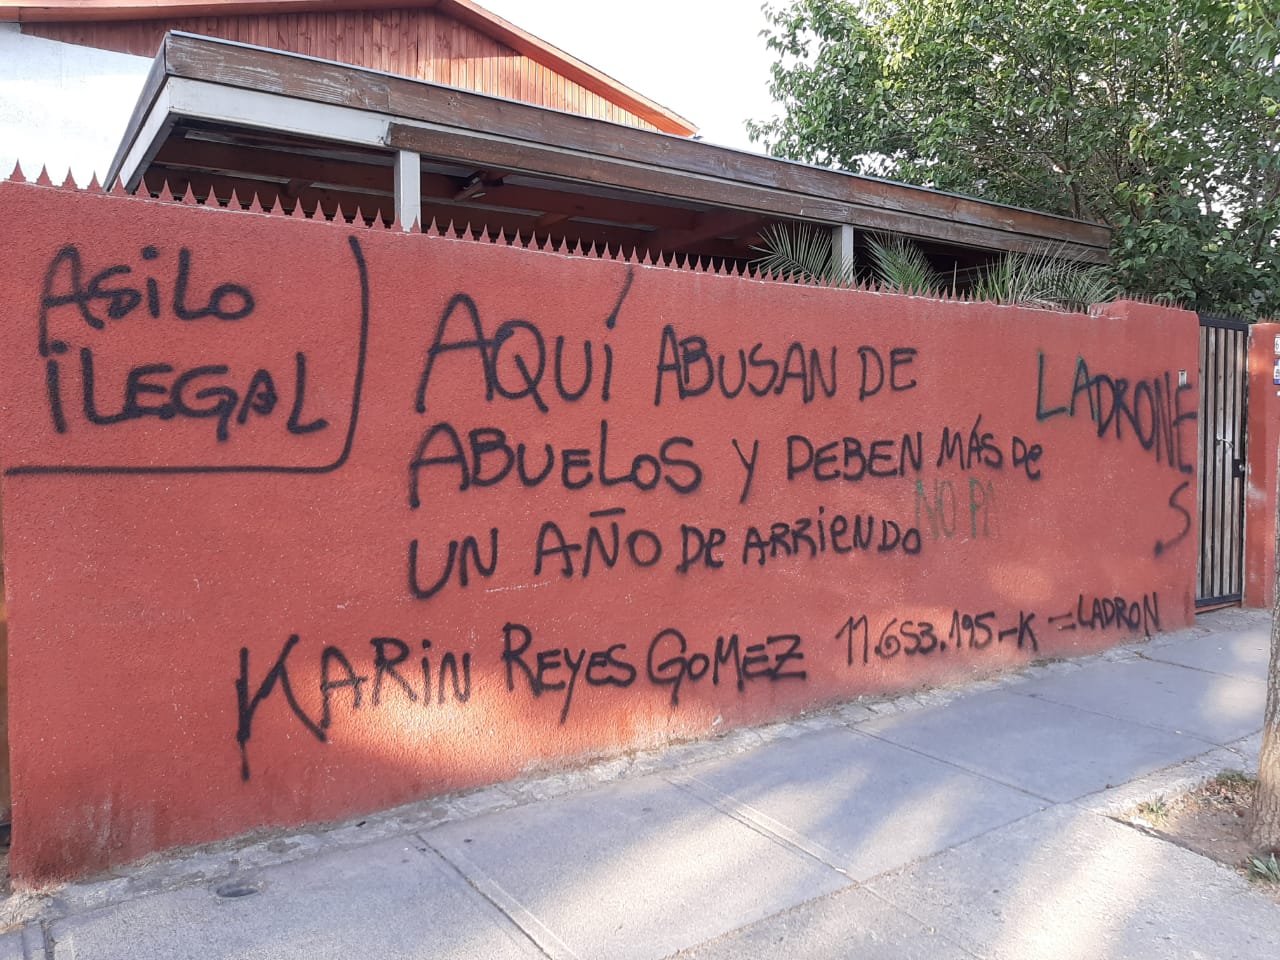 Asilo
ilEGAL
AQUÍ ABUSAN DE
ABUElOS Y DEBEN MÁS De
UN AÑO De ARRiENDO
NO PA
LADRONE
S
KARiN REYES GOMEZ 11.653.195-K = LADRON